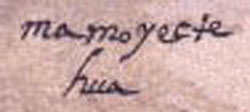 mamoyecte
hua